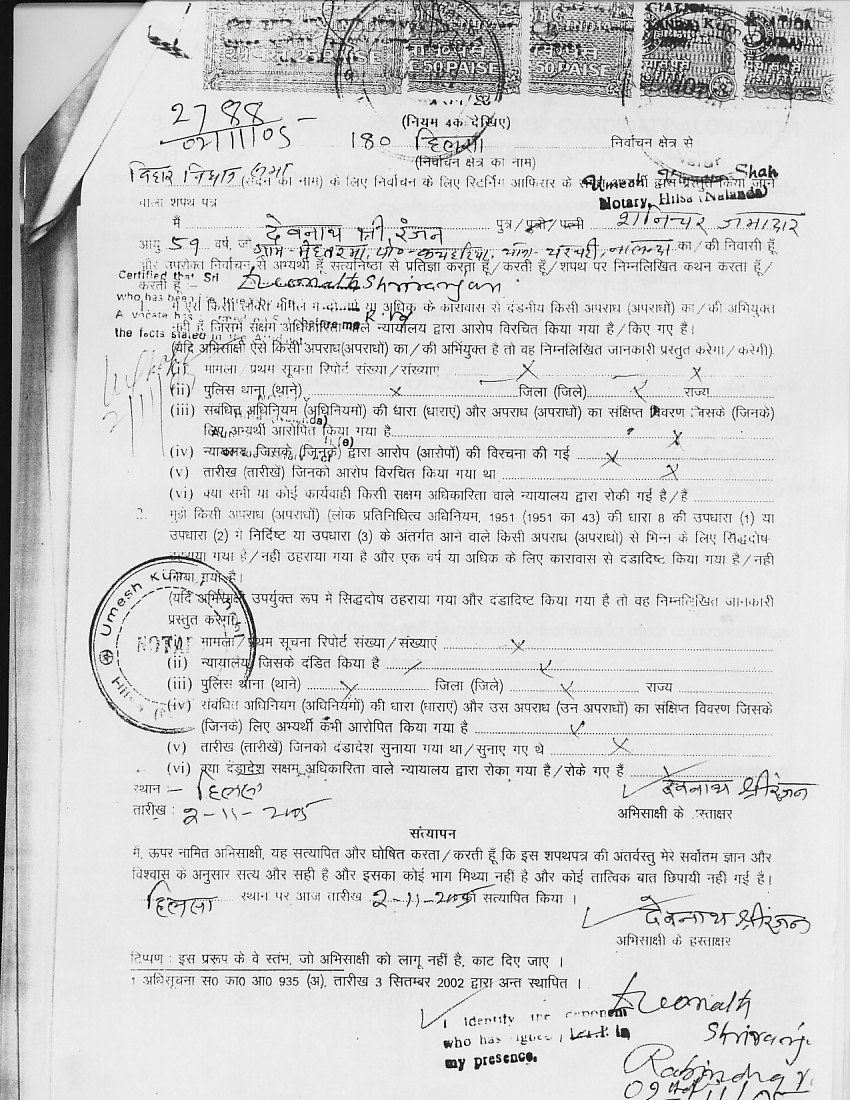 25 PAISE
50 PAISE
50 PAISE
2788
02/11/05
(नियम 4क देखिए)
180 हिलसा निर्वाचन क्षेत्र से
(निर्वाचन क्षेत्र का नाम)
बिहार विधान सभा (सदन का नाम) के लिए निर्वाचन के लिए रिटर्निंग आफिसर के द्वारा प्रस्तुत किया जाने
Umesh Shah
Notary, Hilsa (Nalanda)
वाला शपथ पत्र
मैं देवनाथ श्री रंजन पुत्र/पुत्री/पत्नी शनिचर जमादार
आयु 59 वर्ष, जो का/की निवासी हूँ
और उपरोक्त निर्वाचन से अभ्यर्थी हूँ सत्यनिष्ठा से प्रतिज्ञा करता हूँ/करती हूँ/शपथ पर निम्नलिखित कथन करता हूँ/
करती हूँ :- Deonath Shriranjan
Certified that Sri
who has
the facts stated
1. मैं ऐसे किसी लंबित मामले में दो वर्ष या अधिक के कारावास से दंडनीय किसी अपराध (अपराधों) का/की अभियुक्त
नहीं हूँ जिसमें सक्षम अधिकारिता वाले न्यायालय द्वारा आरोप विरचित किया गया है/किए गए है।
(यदि अभिसाक्षी ऐसे किसी अपराध(अपराधों) का/की अभियुक्त है तो वह निम्नलिखित जानकारी प्रस्तुत करेगा/करेगी)
(i) मामला/प्रथम सूचना रिपोर्ट संख्या/संख्याएं X X
(ii) पुलिस थाना (थाने) X जिला (जिले) राज्य
(iii) संबंधित अधिनियम (अधिनियमों) की धारा (धाराएं) और अपराध (अपराधों) का संक्षिप्त विवरण जिसके (जिनके)
लिए अभ्यर्थी आरोपित किया गया है X
(iv) न्यायालय जिसके (जिनके) द्वारा आरोप (आरोपों) की विरचना की गई X
(v) तारीख (तारीखें) जिनको आरोप विरचित किया गया था X
(vi) क्या सभी या कोई कार्यवाही किसी सक्षम अधिकारिता वाले न्यायालय द्वारा रोकी गई है/है
2. मुझे किसी अपराध (अपराधों) (लोक प्रतिनिधित्व अधिनियम, 1951 (1951 का 43) की धारा 8 की उपधारा (1) या
उपधारा (2) में निर्दिष्ट या उपधारा (3) के अंतर्गत आने वाले किसी अपराध (अपराधों) से भिन्न के लिए सिद्धदोष
ठहराया गया है/नहीं ठहराया गया है और एक वर्ष या अधिक के लिए कारावास से दंडादिष्ट किया गया है/नहीं
किया गया है।
(यदि अभिसाक्षी उपर्युक्त रूप में सिद्धदोष ठहराया गया और दंडादिष्ट किया गया है तो वह निम्नलिखित जानकारी
प्रस्तुत करेगा)
Umesh Kumar
NOTARY
Hilsa
मामला/प्रथम सूचना रिपोर्ट संख्या/संख्याएं X
(ii) न्यायालय जिसके दंडित किया है
(iii) पुलिस थाना (थाने) X जिला (जिले) X राज्य
(iv) संबंधित अधिनियम (अधिनियमों) की धारा (धाराएं) और उस अपराध (उन अपराधों) का संक्षिप्त विवरण जिसके
(जिनके) लिए अभ्यर्थी कभी आरोपित किया गया है
(v) तारीख (तारीखें) जिनको दंडादेश सुनाया गया था/सुनाए गए थे X
(vi) क्या दंडादेश सक्षम अधिकारिता वाले न्यायालय द्वारा रोका गया है/रोके गए हैं
स्थान :- हिलसा देवनाथ श्रीरंजन
तारीख : 2-11-2005 अभिसाक्षी के हस्ताक्षर
सत्यापन
मैं, ऊपर नामित अभिसाक्षी, यह सत्यापित और घोषित करता/करती हूँ कि इस शपथपत्र की अंतर्वस्तु मेरे सर्वोतम ज्ञान और
विश्वास के अनुसार सत्य और सही है और इसका कोई भाग मिथ्या नही है और कोई तात्विक बात छिपायी नही गई है।
हिलसा स्थान पर आज तारीख 2-11-2005 को सत्यापित किया ।
देवनाथ श्रीरंजन
अभिसाक्षी के हस्ताक्षर
टिप्पण : इस प्ररूप के वे स्तंभ, जो अभिसाक्षी को लागू नहीं है, काट दिए जाए ।
1 अधिसूचना स0 का0 आ0 935 (अ), तारीख 3 सितम्बर 2002 द्वारा अन्त स्थापित ।
I identify the deponent
who has signed
my presence.
Deonath
Shriranjan